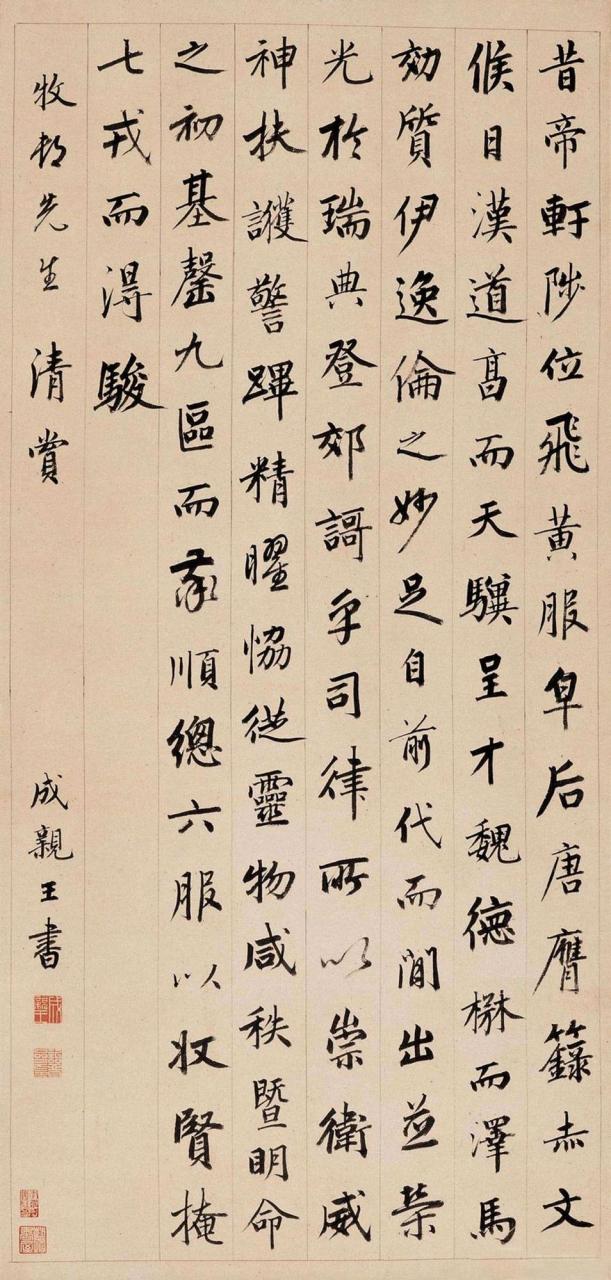 昔帝軒陟位飛黃服皁后唐膺籙赤文
候日漢道髙而天驥呈才魏德楙而澤馬
効質伊逸倫之妙足自前代而間出並榮
光於瑞典登郊謌乎司律所以崇衛威
神扶護警蹕精曜恊從靈物咸秩暨明命
之初基罄九區而率順總六服以收賢掩
七戎而得駿
牧邨先生清賞
成親王書